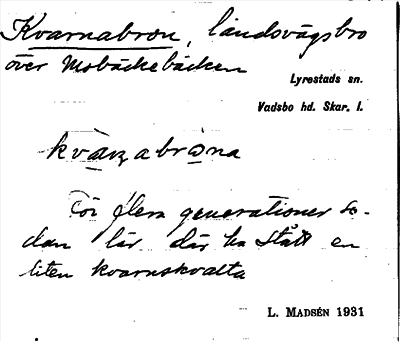 Kvarnabron, landsvägsbro
över Mobäckebäcken
Lyrestads sn.
Vadsbo hd. Skar. l.
kvaɳabrona
För flera generationer se-
dan lär där ha stått en
liten kvarnskvalta
L. MADSÉN 1931